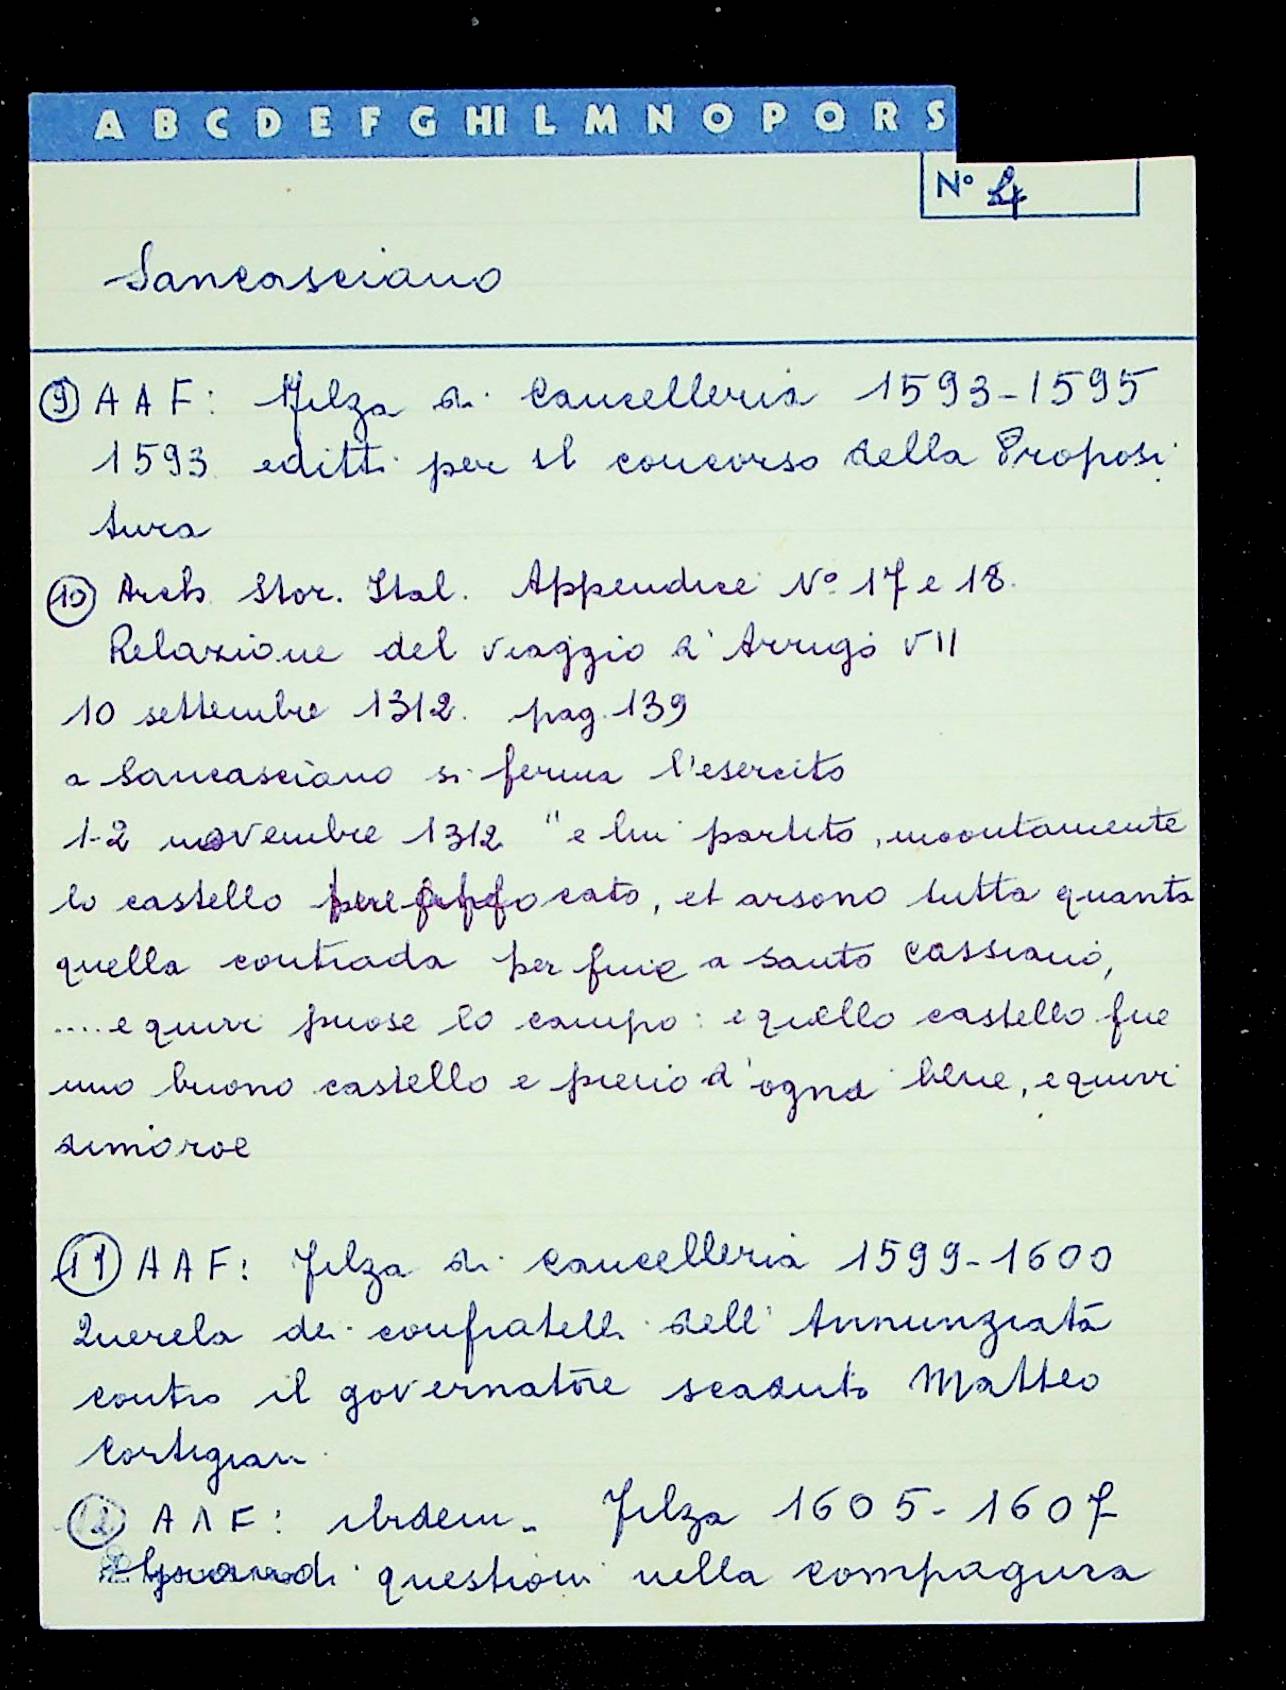 A B C D E F G HI L M N O P Q R S
N° 4
Sancasciano
9 A A F: Filza di Cancelleria 1593-1595
1593 editti per il concorso della Proposi
tura
10 Arch. Stor. Ital. Appendice N° 17 e 18.
Relazione del viaggio d'Arrigo VII
10 settembre 1312. pag. 139
a Sancasciano si ferma l'esercito
1-2 novembre 1312 "e lui partito, incontamente
lo castello cato, et arsono tutta quanta
quella contrada per fine a Santo Cassiano,
.... e quivi puose lo campo: e quello castello fue
uno buono castello e pieno d'ogne bene, e quivi
dimoroe
11 A A F: Filza di Cancelleria 1599-1600
Querela dei confratelli dell'Annunziata
contro il governatore scaduto Matteo
Cortigiani
12 A A F: ibidem. Filza 1605-1607
Grandi questioni nella compagnia